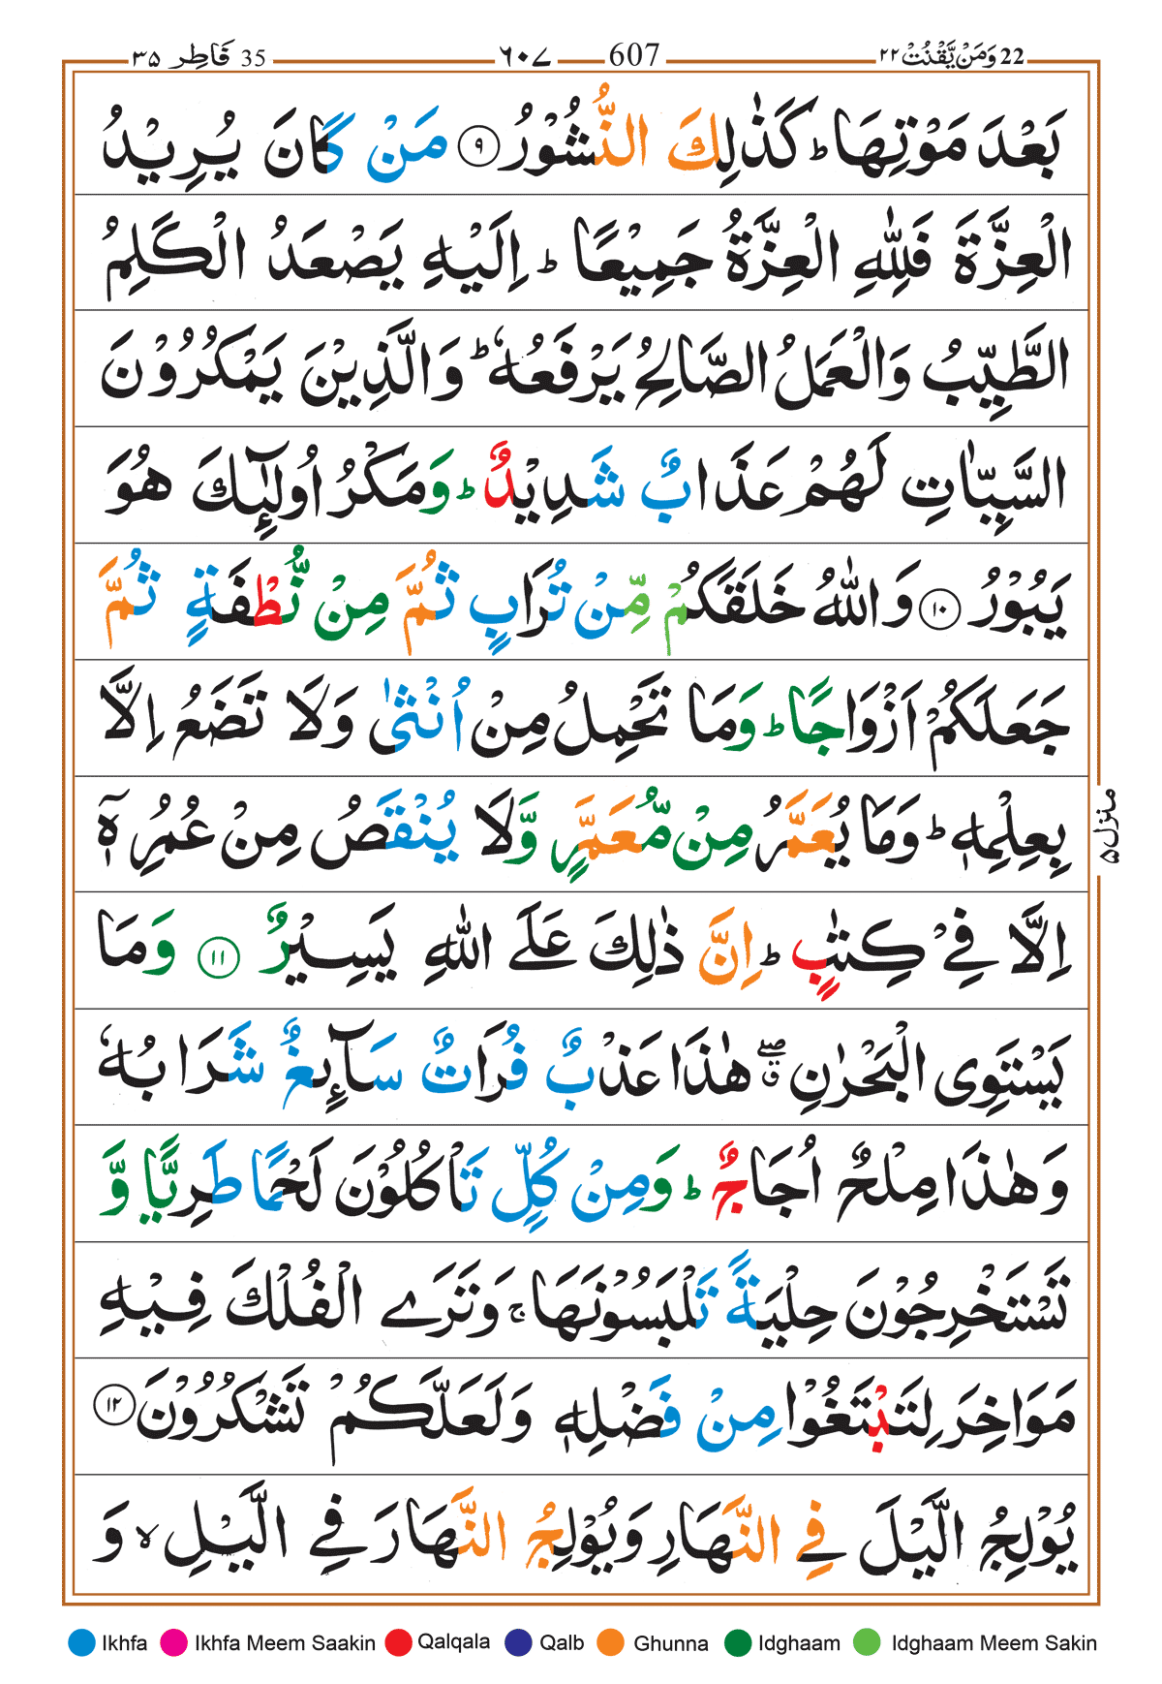 35 فَاطِر ٣٥ ٦٠٧ 607 ٢٢ وَمَنْ يَّقْنُتْ 22
بَعْدَ مَوْتِهَا ؕ كَذٰلِكَ النُّشُوْرُ ۹ مَنْ كَانَ يُرِيْدُ
الْعِزَّةَ فَلِلّٰهِ الْعِزَّةُ جَمِيْعًا ؕ اِلَيْهِ يَصْعَدُ الْكَلِمُ
الطَّيِّبُ وَالْعَمَلُ الصَّالِحُ يَرْفَعُهٗ ؕ وَالَّذِيْنَ يَمْكُرُوْنَ
السَّيِّاٰتِ لَهُمْ عَذَابٌ شَدِيْدٌ ؕ وَمَكْرُ اُولٰٓئِكَ هُوَ
يَبُوْرُ ۱۰ وَاللّٰهُ خَلَقَكُمْ مِّنْ تُرَابٍ ثُمَّ مِنْ نُّطْفَةٍ ثُمَّ
جَعَلَكُمْ اَزْوَاجًا ؕ وَمَا تَحْمِلُ مِنْ اُنْثٰى وَلَا تَضَعُ اِلَّا
بِعِلْمِهٖ ؕ وَمَا يُعَمَّرُ مِنْ مُّعَمَّرٍ وَّلَا يُنْقَصُ مِنْ عُمُرِهٖۤ
اِلَّا فِيْ كِتٰبٍ ؕ اِنَّ ذٰلِكَ عَلَى اللّٰهِ يَسِيْرٌ ۱۱ وَمَا
يَسْتَوِى الْبَحْرٰنِ ۖۗ هٰذَا عَذْبٌ فُرَاتٌ سَآئِغٌ شَرَابُهٗ
وَهٰذَا مِلْحٌ اُجَاجٌ ؕ وَمِنْ كُلٍّ تَاْكُلُوْنَ لَحْمًا طَرِيًّا وَّ
تَسْتَخْرِجُوْنَ حِلْيَةً تَلْبَسُوْنَهَا ۚ وَتَرَى الْفُلْكَ فِيْهِ
مَوَاخِرَ لِتَبْتَغُوْا مِنْ فَضْلِهٖ وَلَعَلَّكُمْ تَشْكُرُوْنَ ۱۲
يُوْلِجُ الَّيْلَ فِى النَّهَارِ وَيُوْلِجُ النَّهَارَ فِى الَّيْلِ ۙ وَ
منزل ٥
Ikhfa Ikhfa Meem Saakin Qalqala Qalb Ghunna Idghaam Idghaam Meem Sakin